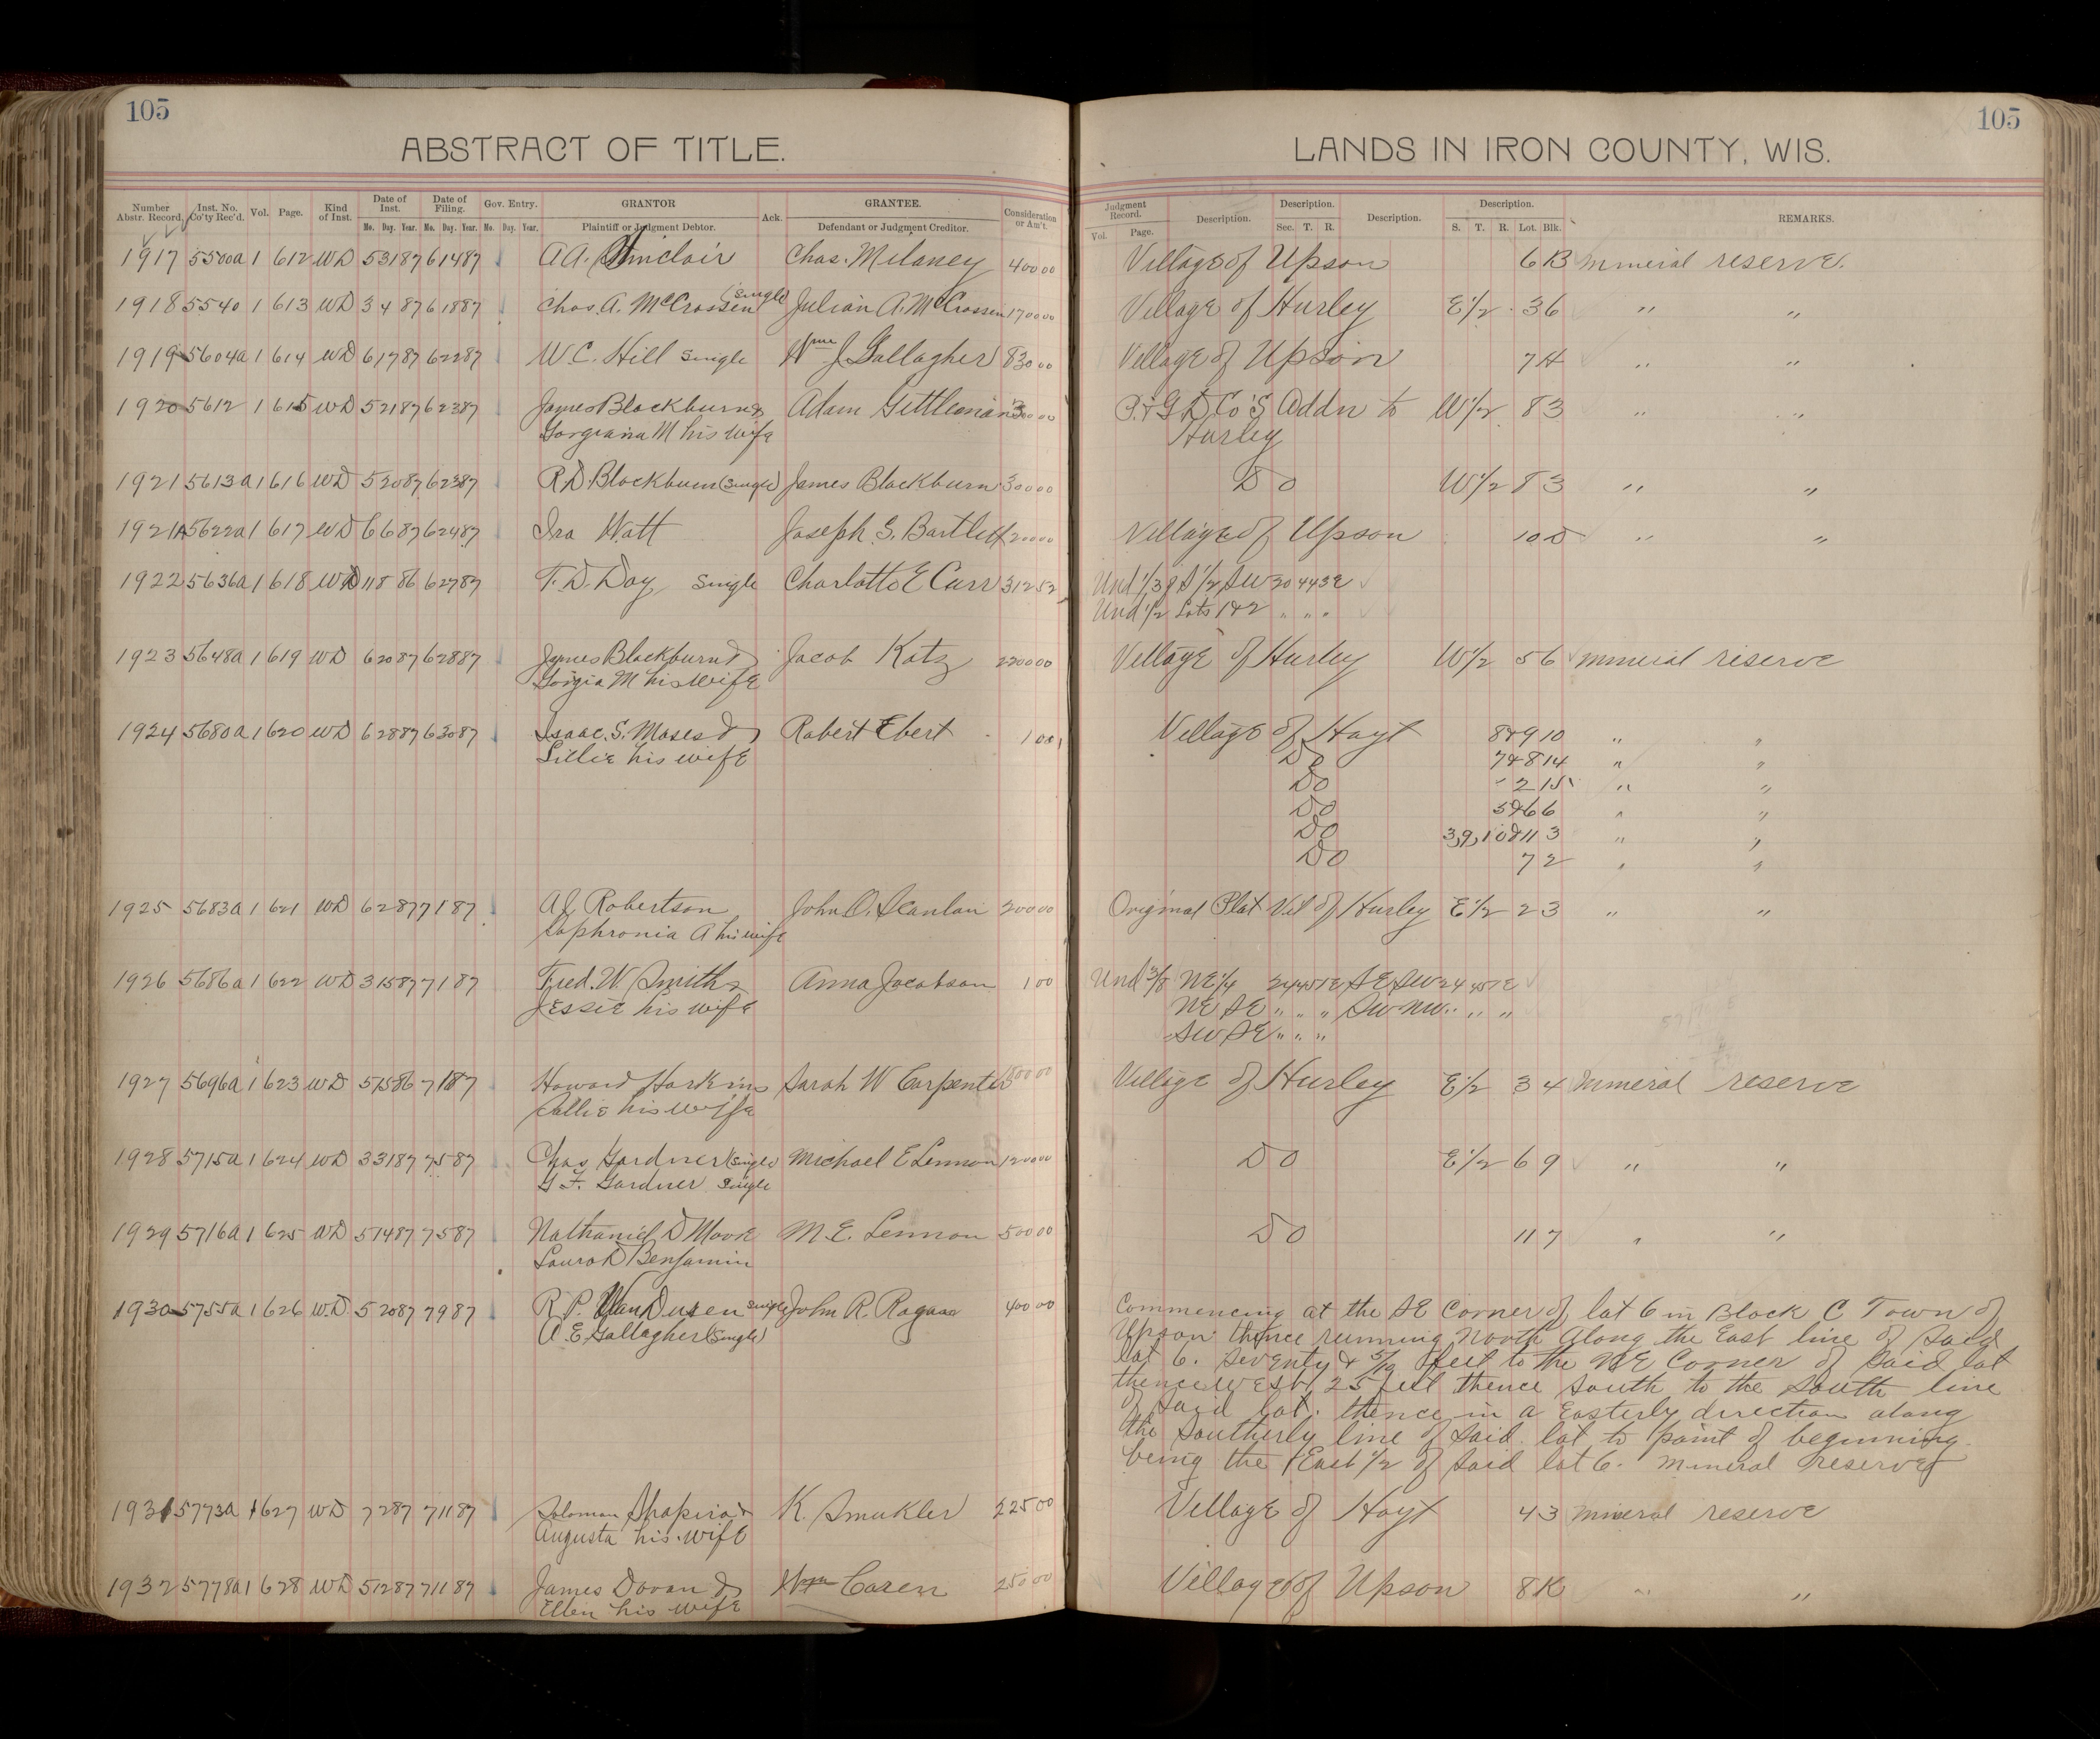 105
ABSTRACT OF TITLE.
Number Abstr. Record. Inst. No. Co'ty Rec'd. Vol. Page. Kind of Inst. Date of Inst. Mo. Day. Year. Date of Filing. Mo. Day. Year. Gov. Entry. Mo. Day. Year. GRANTOR Plaintiff or Judgment Debtor. Ack. GRANTEE. Defendant or Judgment Creditor. Consideration or Am't.
1917 5500a 1 612 WD 5 31 87 6 14 87 A A. Sinclair Chas. Melaney 400 00
1918 5540 1 613 WD 3 4 87 6 18 87 Chas. A. McCrossen (single) Julian A. McCrossen 1700 00
1919 5604a 1 614 WD 6 17 87 6 22 87 W.C. Hill single Wm J Gallagher 830 00
1920 5612 1 615 WD 5 21 87 6 23 87 James Blackburn & Adam Gettleman
Gorgiana M his wife
1921 5613a 1 616 WD 5 20 87 6 23 87 R.D. Blackburn (single) James Blackburn 300 00
1921A 5622a 1 617 WD 6 6 87 6 24 87 Ira Watt Joseph S. Bartlett 200 00
1922 5636a 1 618 WD 11 8 86 6 27 87 T. D. Day single Charlotte E Carr 312 52
1923 5648a 1 619 WD 6 20 87 6 28 87 James Blackburn & Jacob Katz 2200 00
Gorgia M his wife
1924 5680a 1 620 WD 6 28 87 6 30 87 Isaac. S. Moses & Robert Ebert 1 00
Lillie his wife
1925 5683a 1 621 WD 6 28 87 7 1 87 A J Robertson John O. Scanlan 200 00
Sophronia A his wife
1926 5686a 1 622 WD 3 15 87 7 1 87 Fred. W. Smith & Anna Jacobson 1 00
Jessie his wife
1927 5696a 1 623 WD 5 15 86 7 1 87 Howard Harkins Sarah W Carpenter
Sallie his wife
1928 5715a 1 624 WD 3 31 87 7 5 87 Chas Gardner (single) Michael E Lennon 1200 00
G F. Gardner single
1929 5716a 1 625 WD 5 14 87 7 5 87 Nathaniel D Moore M. E. Lennon 500 00
Laura D Benjamin
1930 5755a 1 626 W.D. 5 20 87 7 9 87 R. P. Van Dusen single John R. Ragan 400 00
A. E. Gallagher (single)
1931 5773a 1 627 WD 7 2 87 7 11 87 Soloman Shapira & K. Smukler 225 00
Augusta his wife
1932 5778a 1 628 WD 5 12 87 7 11 87 James Doran & Wm Caren 250 00
Ellen his wife
105
LANDS IN IRON COUNTY, WIS.
Judgment Record. Vol. Page. Description. Description. Sec. T. R. Description. Description. S. T. R. Lot. Blk. REMARKS.
Village of Upson 6 B Mineral reserve.
Village of Hurley E 1/2 3 6 " "
Village of Upson 7 H " "
P. & G D Co's Addn to W 1/2 8 3 " "
Hurley
Do W 1/2 8 3 " "
Village of Upson 10 D " "
Und 1/3 of S 1/2 SW 30 44 3E
Und 1/2 Lots 1 & 2 " " "
Village of Hurley W 1/2 5 6 Mineral reserve
Village of Hoyt 8 & 9 10 " "
Do 7 & 8 14 " "
Do 2 15 " "
Do 5 & 6 6 " "
Do 3,9,10 & 11 3 " "
Do 7 2 " "
Original Plat Vil of Hurley E 1/2 2 3 " "
Und 3/8 NE 1/4 24 45 1E SE SW 24 45 1E
NE SE " " " SW NW " " "
SW SE " " "
Village of Hurley E 1/2 3 4 Mineral reserve
Do E 1/2 6 9 " "
Do 11 7 " "
Commencing at the SE Corner of lot 6 in Block C Town of
Upson thence running North along the East line of said
lot 6. seventy & 5/12 feet to the NE Corner of said lot
thence West 25 feet thence south to the south line
of said lot. thence in a Easterly direction along
the Southerly line of said lot to point of beginning
being the East 1/2 of said lot 6. Mineral reserved
Village of Hoyt 4 3 Mineral reserve
Village of Upson 8 K " "